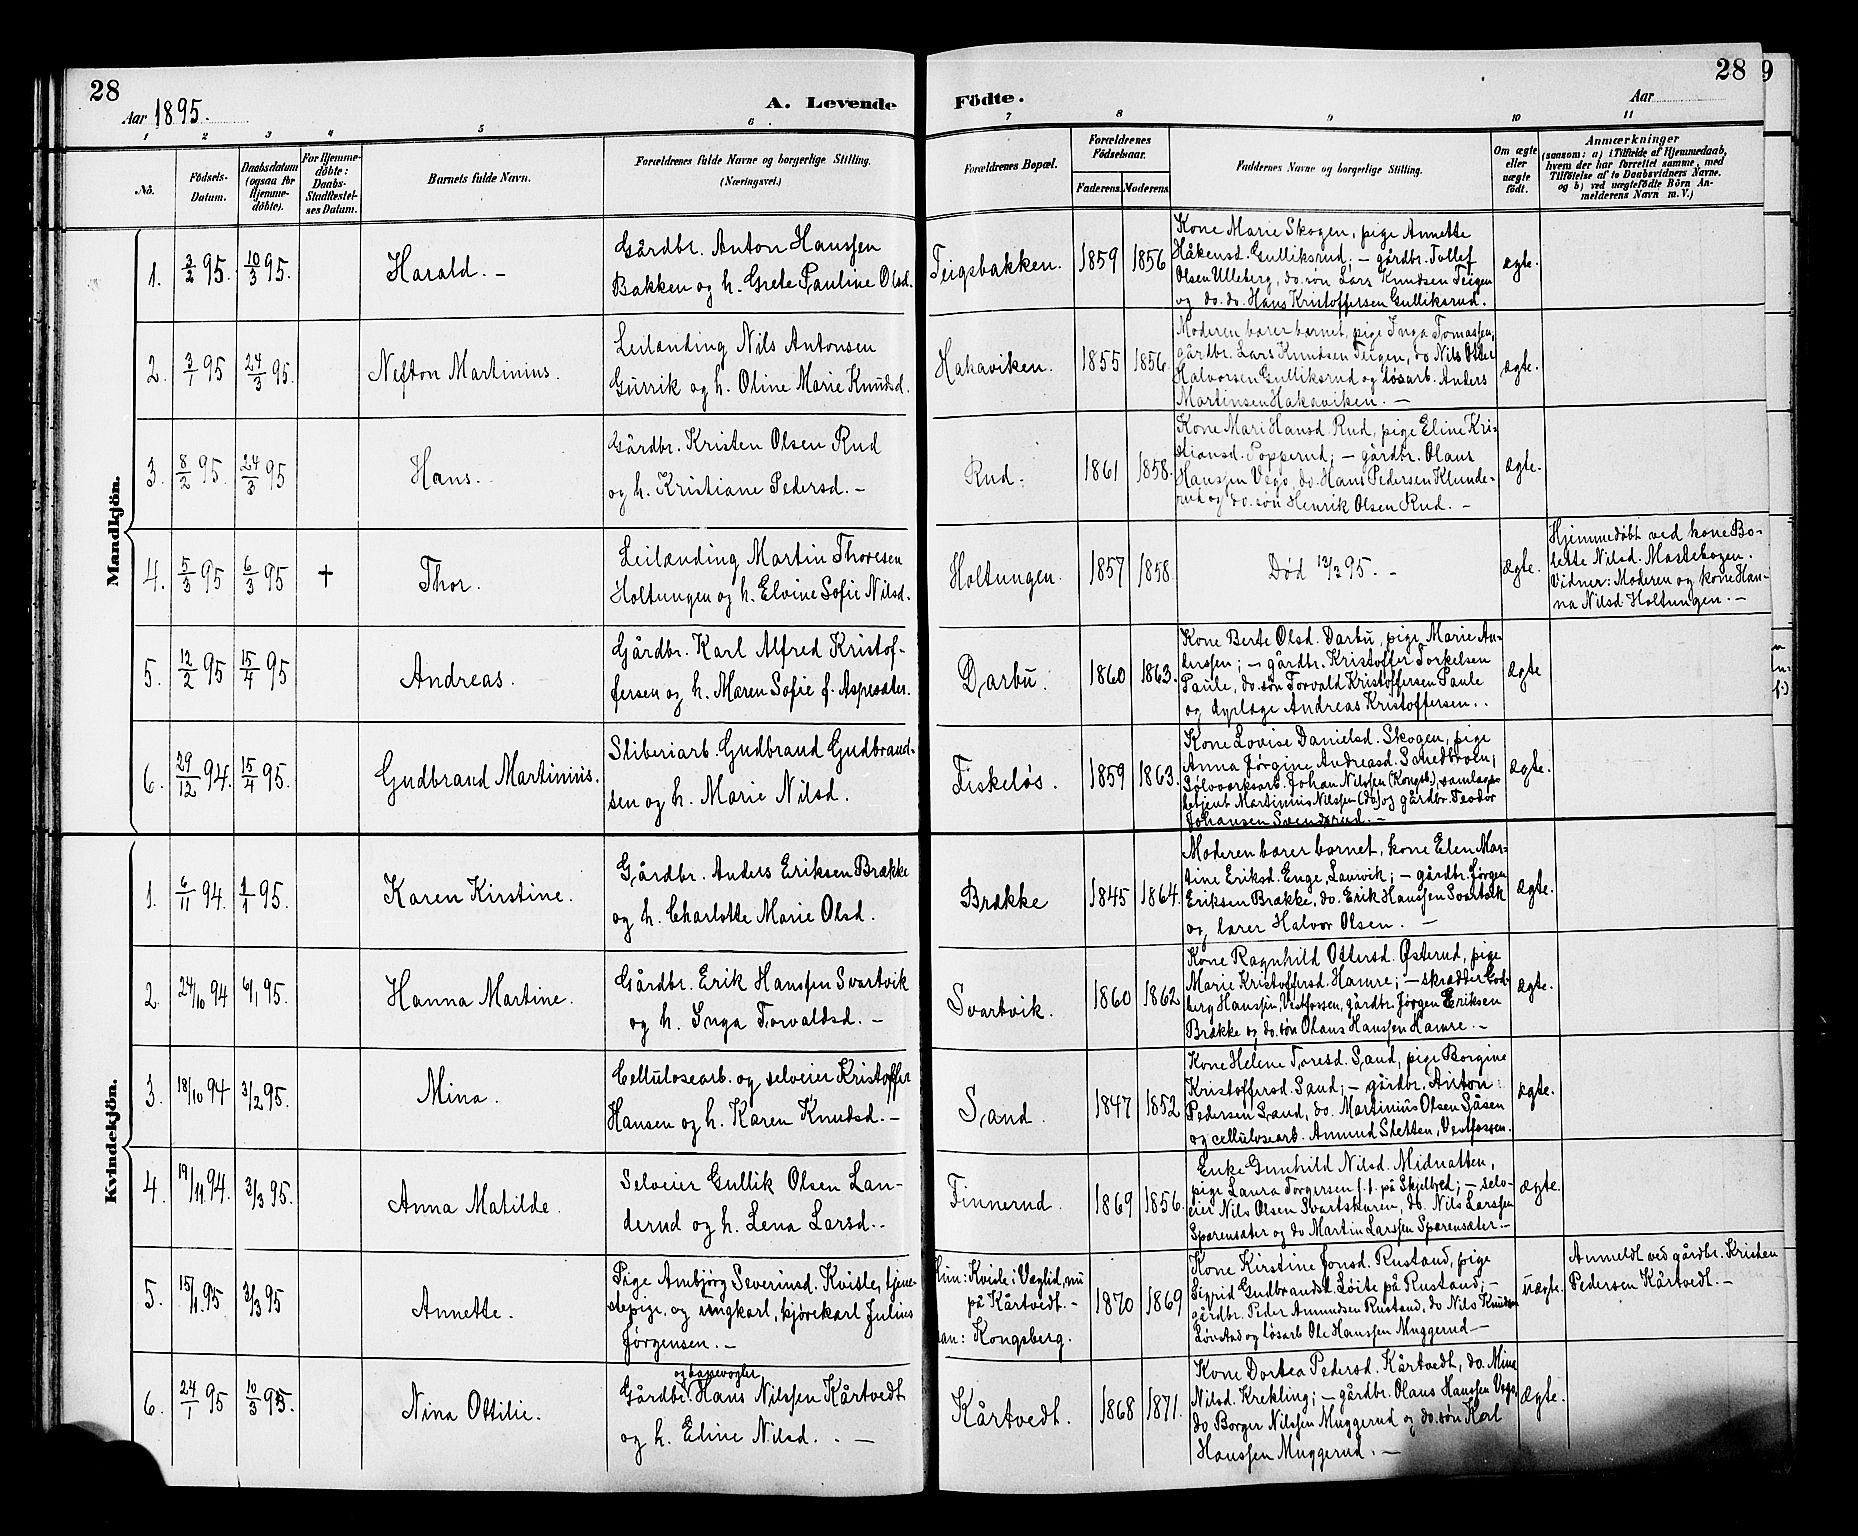 28
28
9
Aar 1895.
A. Levende
Födte.
Aar
1
2
3
4
5
6
7
8
9
10
11
No.
Födsels-
Datum.
Daabsdatum
(ogsaa for
Hjemme-
döbte).
For Hjemme-
döbte:
Daabs-
Stadfæstel-
ses Datum.
Barnets fulde Navn.
Forældrenes fulde Navne og borgerlige Stilling.
(Næringsvei.)
Forældrenes Bopæl.
Forældrenes
Födselsaar.
Faderens.
Moderens.
Faddernes Navne og borgerlige Stilling.
Om ægte
eller
uægte
födt.
Anmærkninger
(saasom: a) i Tilfælde af Hjemmedaab,
hvem der har forrettet samme, med
Tilföielse af to Daabsvidners Navne.
og b) ved uægtefödte Börn An-
melderens Navn m. V.)
Mandkjön.
1.
3/2 95.
10/3 95.
Harald. —
Gårdbr. Anton Hanssen
Bakken og h. Grete Pauline Olsd.
Teigsbakken.
1859
1856
Kone Marie Skogen, pige Annette
Håkensd. Gulliksrud; — gårdbr. Tollef
Olsen Ulleberg, do. søn Lars Knudsen Teigen
og do. do. Hans Kristoffersen Gulliksrud.
ægte.
2.
3/1 95
24/3 95.
Nefton Martinius.
Leilænding Nils Antonsen
Gurrik og h. Oline Marie Knudsd.
Hakaviken.
1855
1856.
Moderen bærer barnet, pige Inga Tomassen,
gårdbr. Lars Knudsen Teigen, do Nils Otter
Halvorsen Gulliksrud og løsarb. Anders
Martinsen Hakaviken. —
ægte.
3.
8/2 95.
24/3 95
Hans.
Gårdbr. Kristen Olsen Rud
og h. Kristiane Pedersd. —
Rud.
1861
1858.
Kone Mari Hansd. Rud, pige Eline Kri-
stiansd. Popperud; — gårdbr. Olaus
Hanssen Vego, do. Hans Pedersen Klunde-
rud og do. søn Henrik Olsen Rud. —
ægte.
4.
5/3 95
6/3 95
+
Thor.
Leilænding Martin Thoresen
Holtungen og h. Elvine Sofie Nilsd.
Holtungen.
1857
1858.
Død 13/3 95. —
ægte.
Hjemmedøbt ved kone Bo-
lette Nilsd. Mastebogen.
Vidner: Moderen og kone Han-
na Nilsd Holtungen. —
5.
12/2 95
15/4 95
Andreas.
Gårdbr. Karl Alfred Kristof-
fersen og h. Maren Sofie f. Aspesæter.
Darbu.
1860
1863.
Kone Berte Olsd. Darbu, pige Marie An-
derssen; — gårdbr. Kristoffer Torkelsen
Paule, do. søn Torvald Kristoffersen Paule
og dyrlæge Andreas Kristoffersen.
ægte
6.
29/12 94.
15/4 95.
Gudbrand Martinius.
Sliberiarb. Gudbrand Gudbrand-
sen og h. Marie Nilsd.
Fiskeløs.
1859
1863.
Kone Lovise Danielsd. Skogen, pige
Anna Jørgine Andreasd.
Sølvværksarb. Johan Nilssen (Kongsb.), samlags-
betjent Martinius Nilssen (do) og gårdbr. Teodor
Johansen Svendsrud. —
ægte.
Kvindekjön.
1.
6/11 94.
1/1 95.
Karen Kirstine.
Gårdbr. Anders Eriksen Brække
og h. Charlotte Marie Olsd.
Brække
1845
1864.
Moderen bærer barnet, kone Elen Mar-
tine Eriksd. Enge, Laurvik; — gårdbr. Jørgen
Eriksen Brække, do. Erik Hanssen Svartvik
og lærer Halvor Olsen. —
ægte.
2.
24/10 94
6/1 95.
Hanna Martine.
Gårdbr. Erik Hanssen Svartvik
og h. Inga Torvaldsd. —
Svartvik.
1860
1862
Kone Ragnhild Ottersd. Østerud, pige
Marie Kristoffersd. Hamre; — skrædder God-
berg Hanssen, Vestfossen, gårdbr. Jørgen Eriksen
Brække og do. søn Olaus Hanssen Hamre. —
ægte.
3.
18/10 94
3/2 95.
Mina.
Cellulosearb. og selveier Kristoffer
Hansen og h. Karen Knudsd. —
Sand.
1847
1852
Kone Helene Toresd. Sand, pige Borgine
Kristoffersd. Sand; — gårdbr. Anton
Pedersen Sand, do. Martinius Olsen Såsen
og cellulosearb. Anmund Sletten, Vestfossen.
ægte.
4.
19/11 94.
3/3 95.
Anna Matilde.
Selveier Gullik Olsen Lan-
derud og h. Lena Larsd. —
Finnerud.
1869
1856.
Enke Gunhild Nilsd. Midnatten,
pige Laura Torgersen f. f. på Skjelbred; — selv-
eier Nils Olsen Svartskuren, do. Nils Larssen
Sporensæter og do Martin Larssen Sporensæter. —
ægte.
5.
15/1 95
3/3 95
Annette.
Pige Ambjørg Severinsd. Kvisle, tjene-
stepige, og ungkarl, kjørekarl Julius
Jørgensen. —
Hun: Kvisle i Veglid, nu
på Kårtvedt. —
Han: Kongsberg.
1870
1869
Kone Kirstine Jonsd. Rustand, pige
Sigrid Gudbrandsd. Løite på Rustand; —
gårdbr. Peder Amundsen Rustand, do Nils Knudsen
Løvstad og løsarb Ole Hanssen Muggerud —
uægte.
Anmeldt ved gårdbr. Kristen
Pedersen Kårtvedt. —
6.
24/1 95
10/3 95
Nina Ottilie.
og banevogter
Gårdbr. Hans Nilssen Kårtvedt
og h. Eline Nilsd. —
Kårtvedt.
1868
1871.
Kone Dortea Pedersd. Kårtvedt, do. Mina
Nilsd. Krekling; — gårdbr. Olaus Hanssen Vego,
do Borger Nilssen Muggerud og do. søn Karl
Hanssen Muggerud. —
ægte.